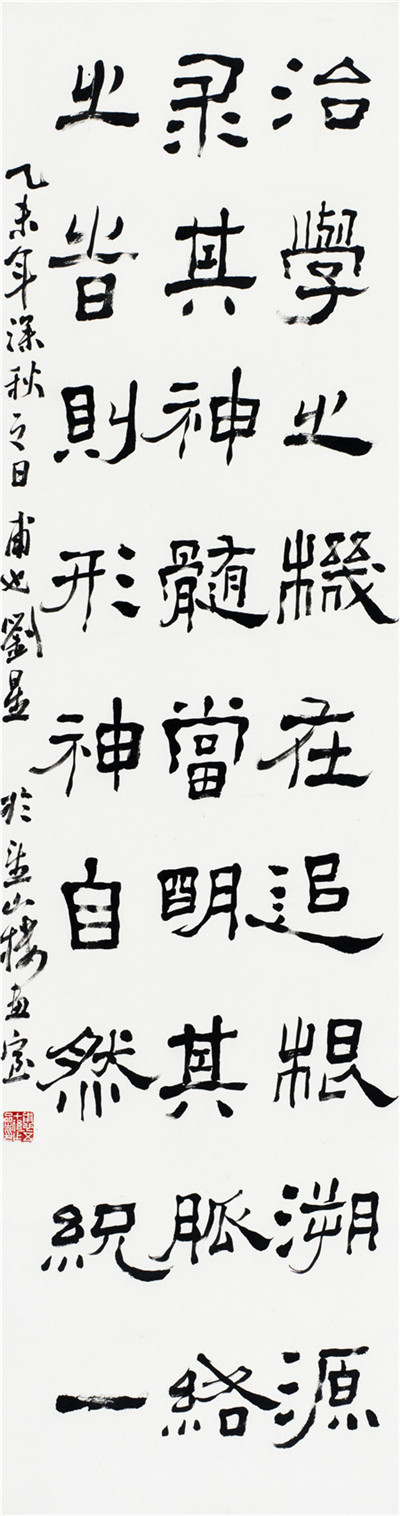 治學之機在追根溯源
求其神髓當明其脈絡
之旨則形神自然統一
乙未年深秋之日甫也劉星於 山樓 窗